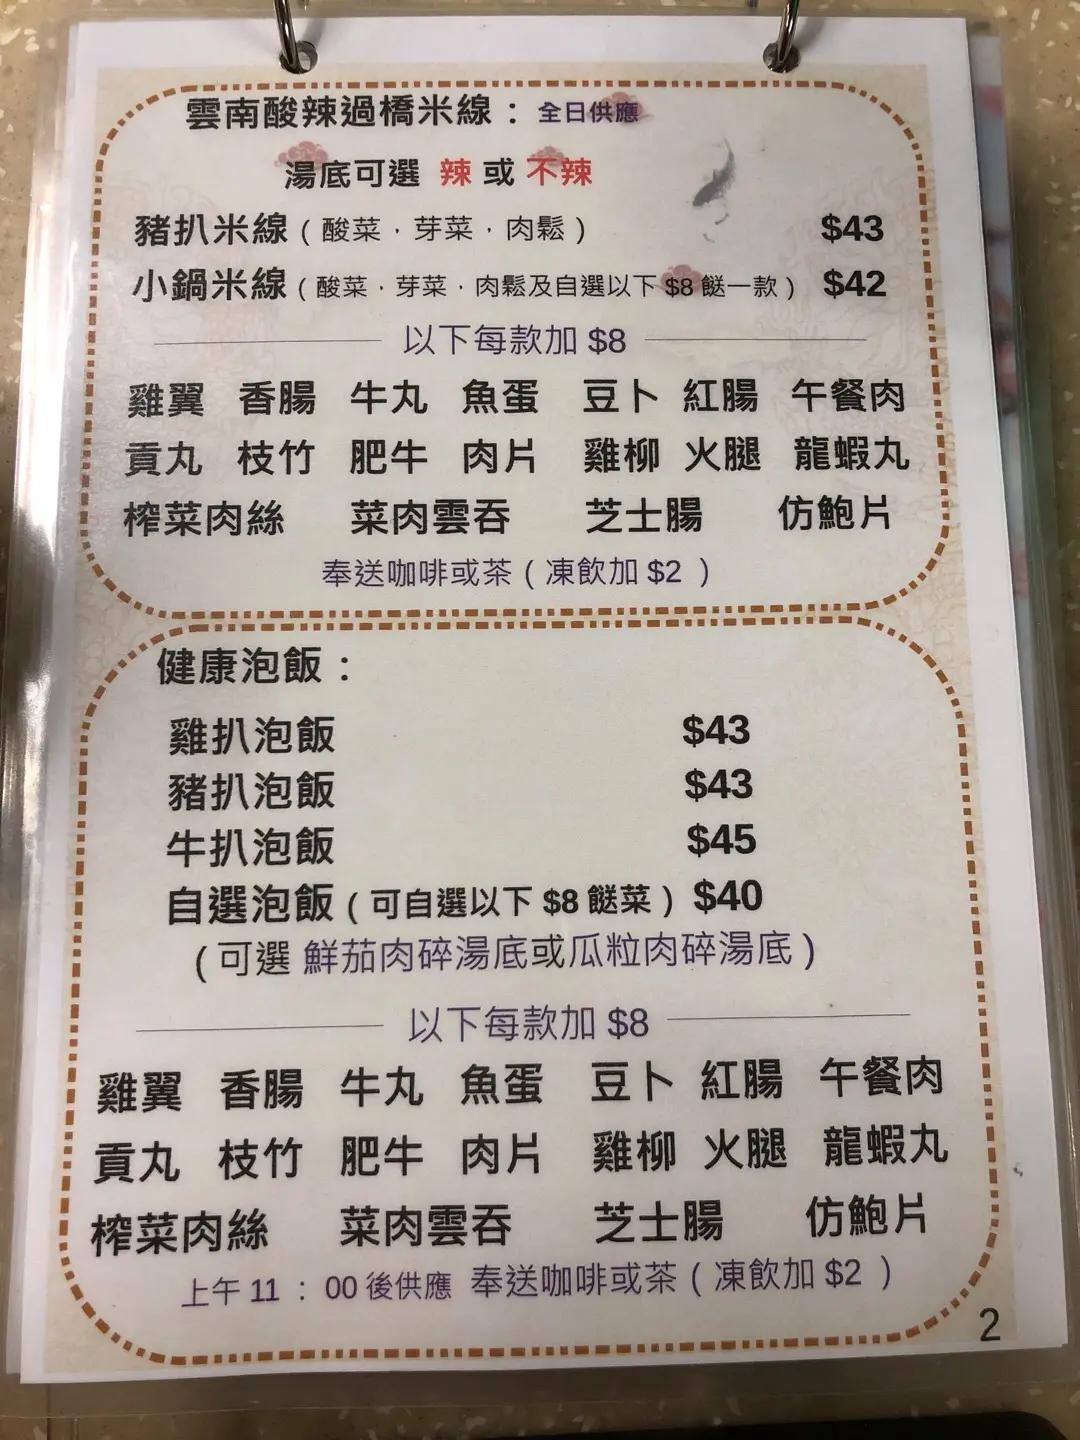 雲南酸辣過橋米線： 全日供應
湯底可選 辣 或 不辣
豬扒米線（酸菜．芽菜．肉鬆） $43
小鍋米線（酸菜．芽菜．肉鬆及自選以下 $8 餸一款） $42
以下每款加 $8
雞翼 香腸 牛丸 魚蛋 豆卜 紅腸 午餐肉
貢丸 枝竹 肥牛 肉片 雞柳 火腿 龍蝦丸
榨菜肉絲 菜肉雲吞 芝士腸 仿鮑片
奉送咖啡或茶（凍飲加 $2 ）
健康泡飯：
雞扒泡飯 $43
豬扒泡飯 $43
牛扒泡飯 $45
自選泡飯（可自選以下 $8 餸菜） $40
（可選 鮮茄肉碎湯底或瓜粒肉碎湯底）
以下每款加 $8
雞翼 香腸 牛丸 魚蛋 豆卜 紅腸 午餐肉
貢丸 枝竹 肥牛 肉片 雞柳 火腿 龍蝦丸
榨菜肉絲 菜肉雲吞 芝士腸 仿鮑片
上午 11 ： 00 後供應 奉送咖啡或茶（凍飲加 $2 ）
2